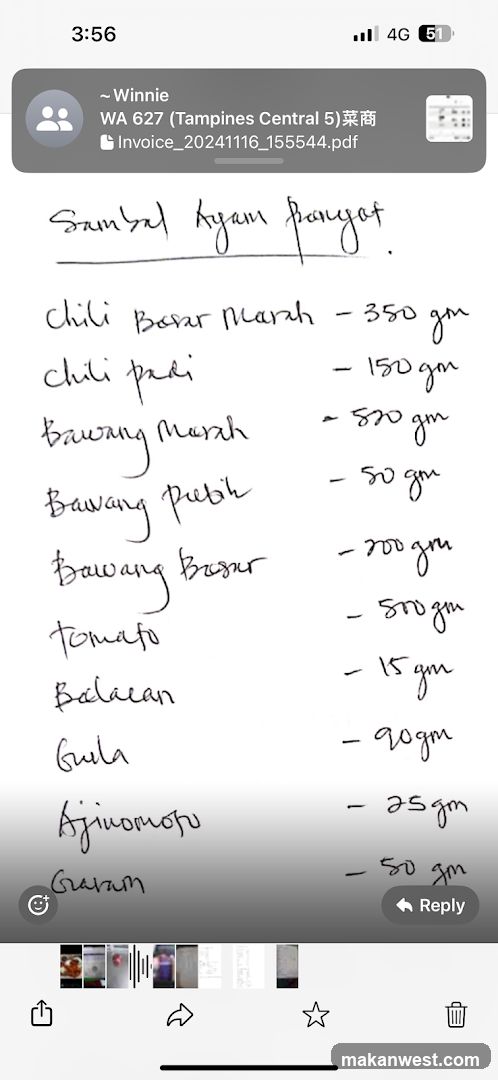 3:56
4G 51
~Winnie
WA 627 (Tampines Central 5)菜商
Invoice_20241116_155544.pdf
Sambal Ayam Panyat.
Chili Besar Merah - 350 gm
Chili padi - 150 gm
Bawang Merah - 520 gm
Bawang Putih - 50 gm
Bawang Besar - 200 gm
Tomato - 500 gm
Balacan - 15 gm
Gula - 90 gm
Ajinomoto - 25 gm
Garam - 50 gm
Reply
makanwest.com